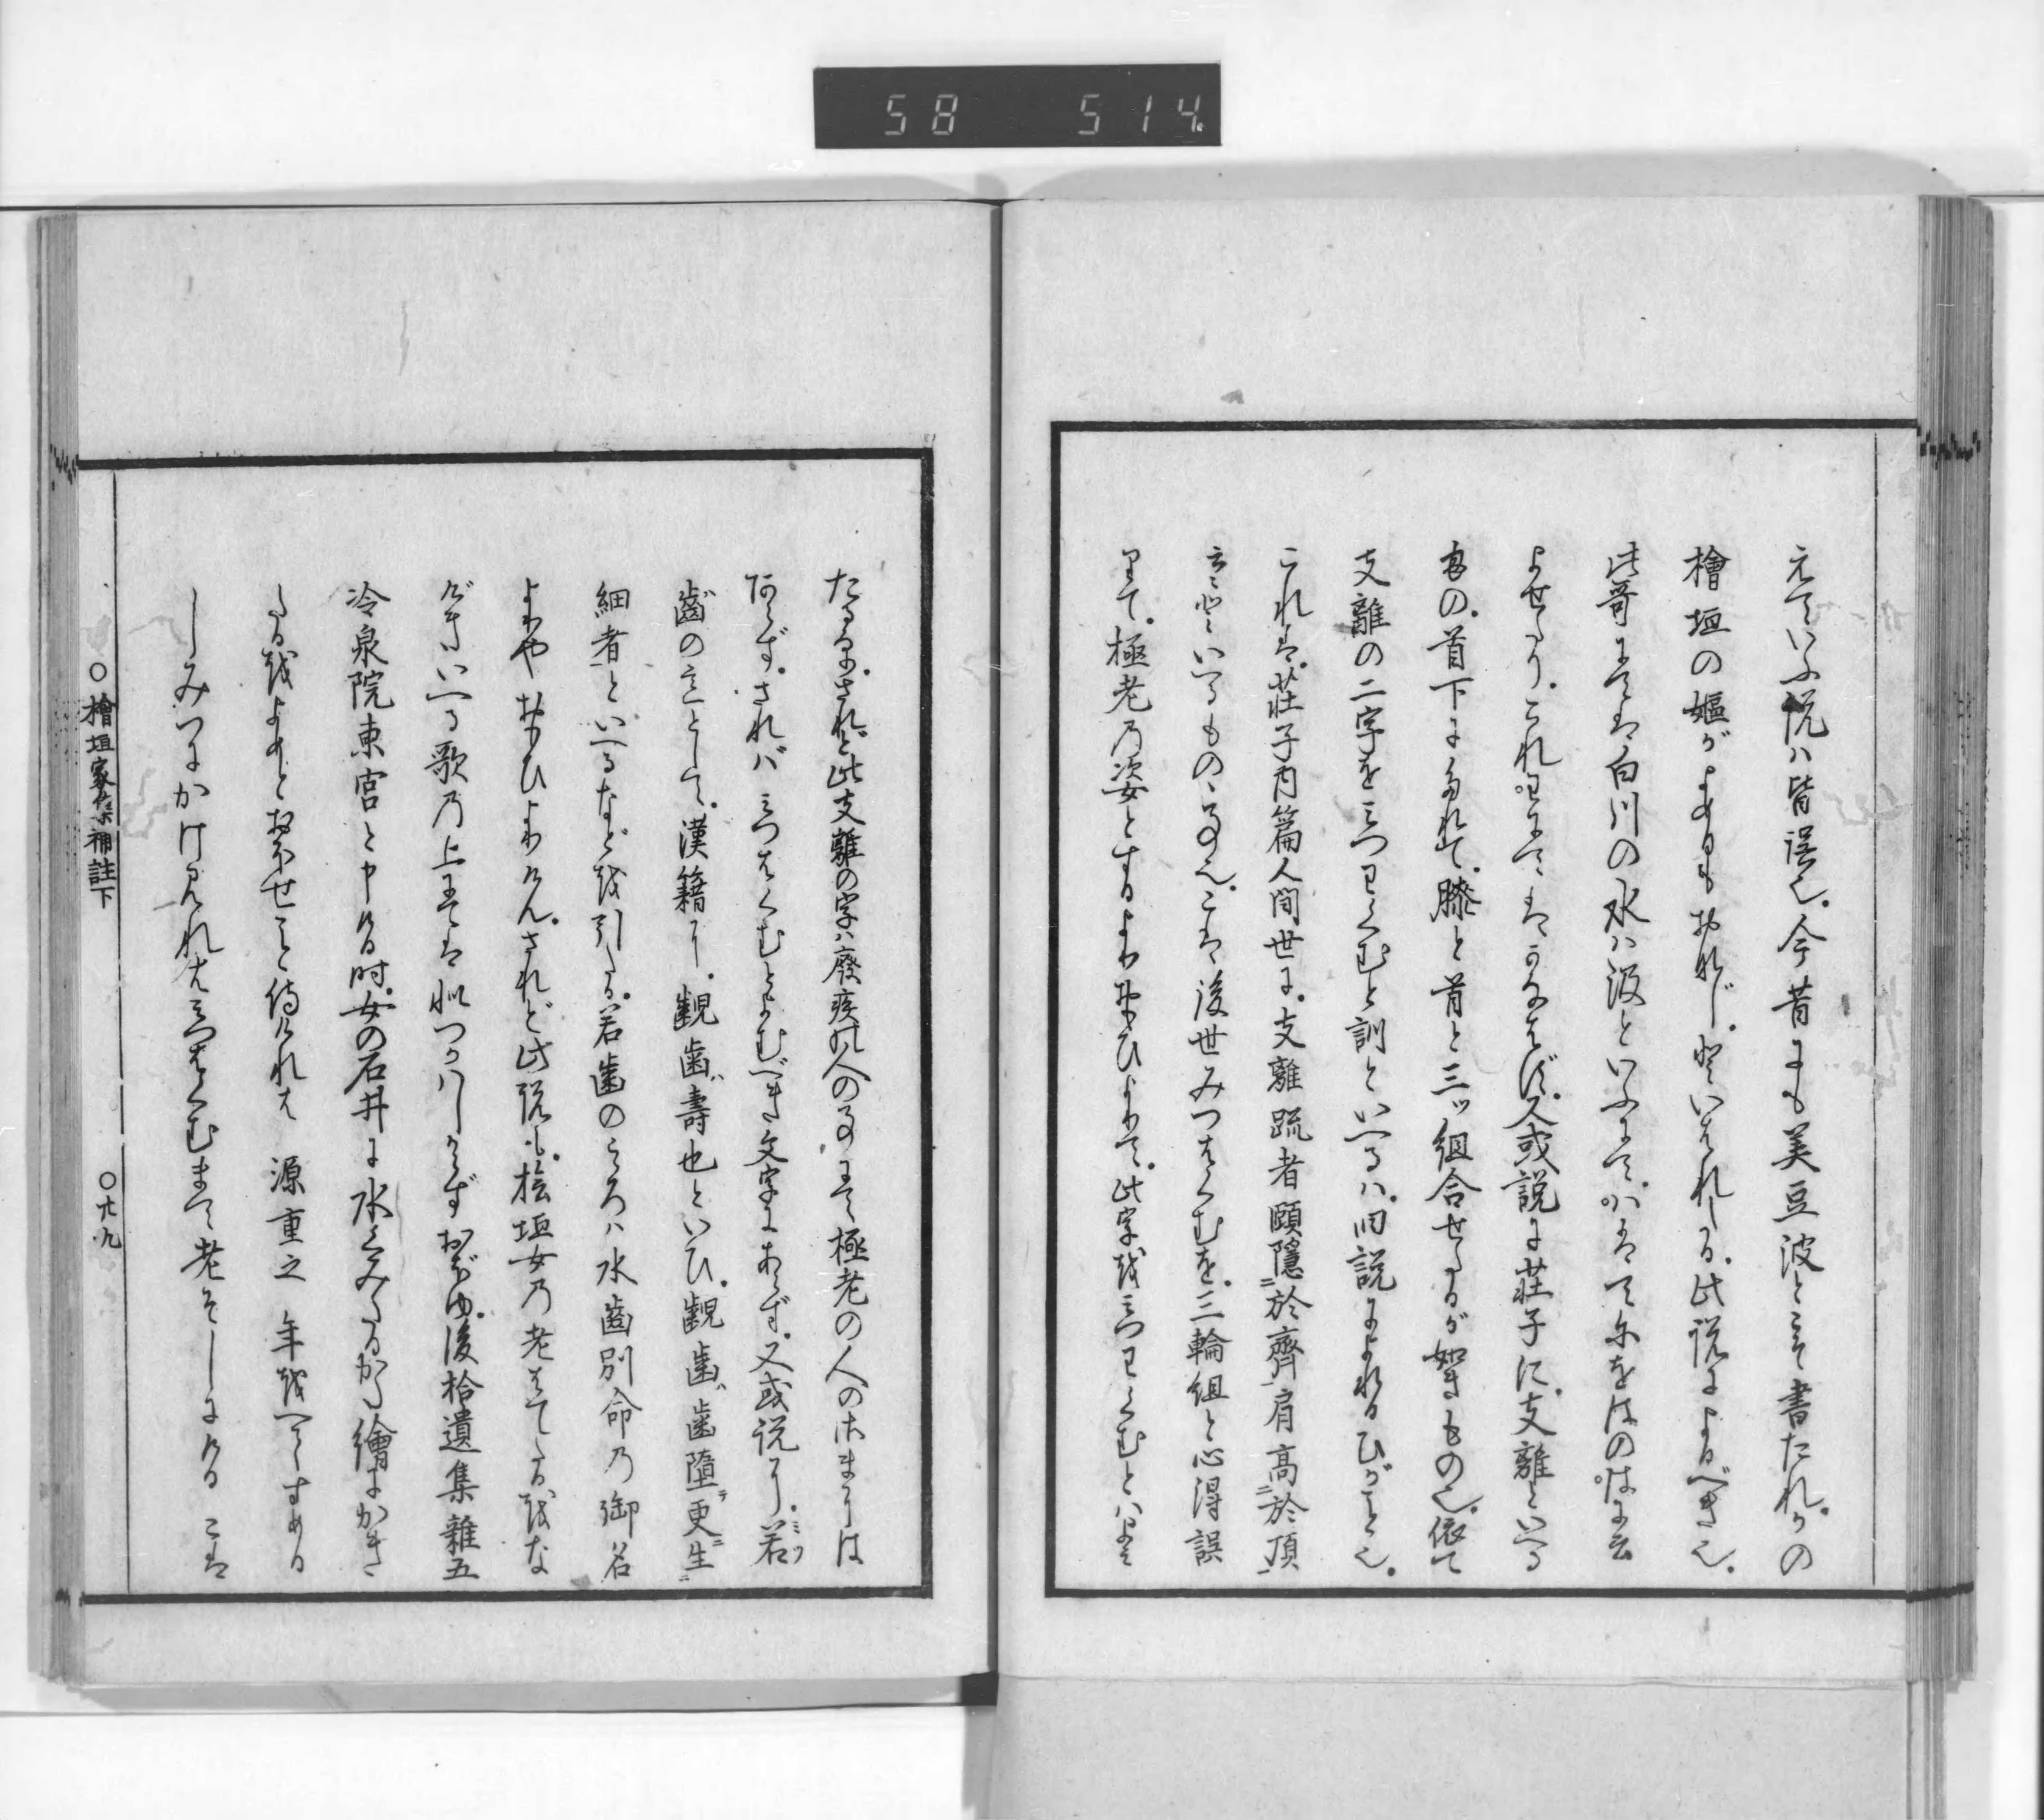 58 514
えていふ説ハ皆誤也。今昔にも美豆波とこそ書たれ。かの
檜垣の嫗がよめるもおなじ。といはれたる。此説によるべき也。
此哥にては白川の水ハ汲といふにて。かはてにをはのはに云
よせたり。これにては かなはず。又或説に荘子に。支離といへる
もの。首下にたれて。膝と首と三ッ組合せたるが如きもの也。依て
支離の二字をみつわくむと訓といへるハ。同説によれるひがこと也。
これは。荘子内篇人間世に。支離疏者頤隠於齊肩高於頂
云々といへるものゝ事也。こは後世みつはくむを。三輪組と心得誤
りて。極老乃姿とするより おもひよりて。此字をみつわくむとハよみ
たるなり。されど此支離の字ハ廢疾の人の事にて極老の人のさまには
あらず。されバ みつはくむとよむべき文字にあらず。又或説に。若
齒の意として。漢籍に。齯齒壽也といひ。齯齒齒墮更生
細者といへるなどを引たる。若齒のこゝろハ水齒別命乃御名
よりや おもひよりけん。されど此説も。桧垣女乃老はてたるをな
げきいへる歌乃上にては 似つかハしからず おぼゆ。後拾遺集雜五
冷泉院東宮と申ける時。女の石井に水くみたるかた繪にかき
たるをよめと おほせこと侍けれは 源重之 年をへてすめる
しみつにかけみれはみつはくむまて老そしにける こは
○檜垣家集補註下 ○廿九